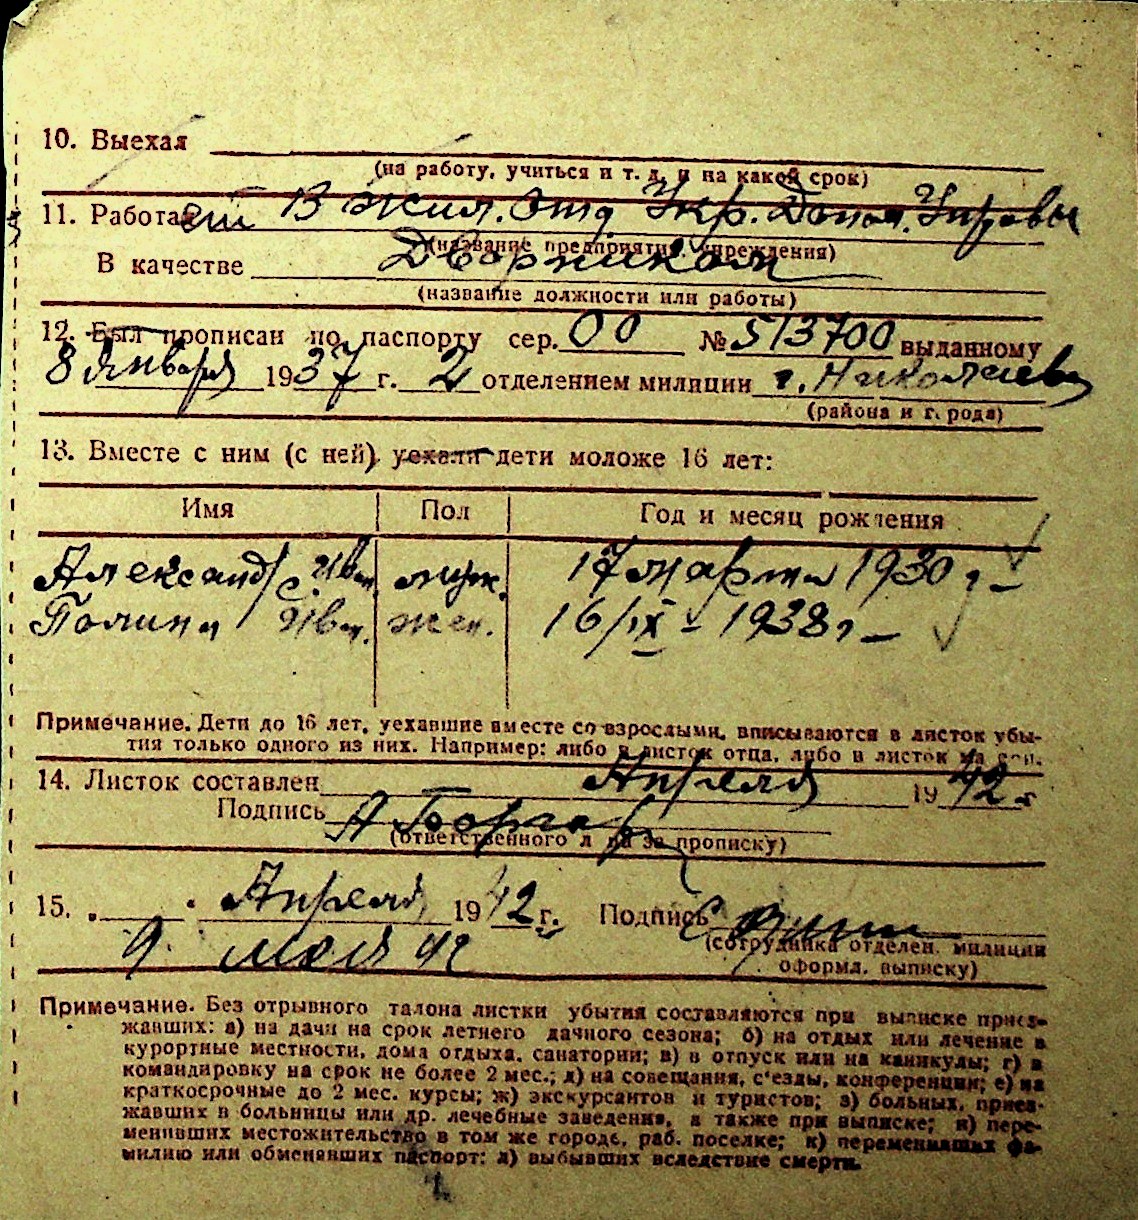 10. Выехал
(на работу, учиться и т. д. и на какой срок)
11. Работает В Жил. Отд Укр. Допом. Управы
(название предприятия, учреждения)
В качестве Дворником
(название должности или работы)
12. Был прописан по паспорту сер. 00 № 513700 выданному
8 Января 1937 г. 2 отделением милиции г. Николаева
(района и города)
13. Вместе с ним (с ней) уехали дети моложе 16 лет:
Имя Пол Год и месяц рождения
Александр Ив. муж. 17 марта 1930 г –
Полина Ив. жен. 16/IX – 1938 г –
Примечание. Дети до 16 лет, уехавшие вместе со взрослыми, вписываются в листок убы-
тия только одного из них. Например: либо в листок отца, либо в листок матери.
14. Листок составлен Апреля 1942 г
Подпись А
(ответственного лица за прописку)
15. „ “ Апреля 1942 г. Подпись
9 мая 42
(сотрудника отделен. милиции
оформл. выписку)
Примечание. Без отрывного талона листки убытия составляются при выписке приез-
жавших: а) на дачи на срок летнего дачного сезона; б) на отдых или лечение в
курортные местности, дома отдыха, санатории; в) в отпуск или на каникулы; г) в
командировку на срок не более 2 мес.; д) на совещания, с'езды, конференции; е) на
краткосрочные до 2 мес. курсы; ж) экскурсантов и туристов; з) больных, приез-
жавших в больницы или др. лечебные заведения, а также при выписке; и) пере-
менивших местожительство в том же городе, раб. поселке; к) переменивших фа-
милию или обменявших паспорт; л) выбывших вследствие смерти.